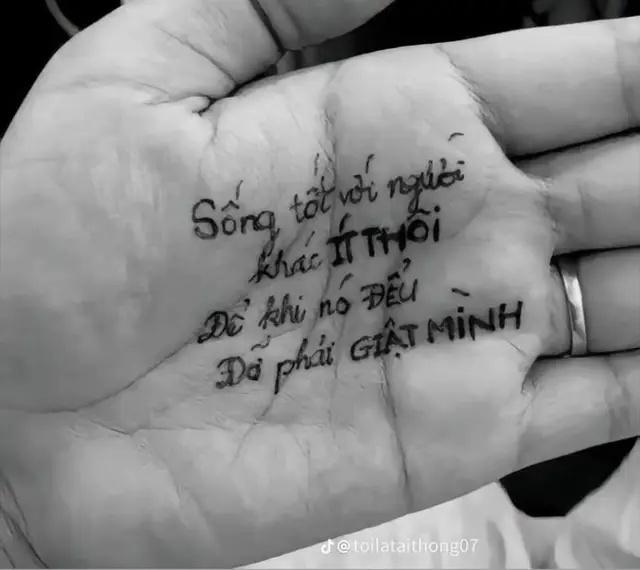 Sống tốt với người
khác ÍT THÔI
Để khi nó ĐỂU
Đỡ phải GIẬT MÌNH
@toilataithong07